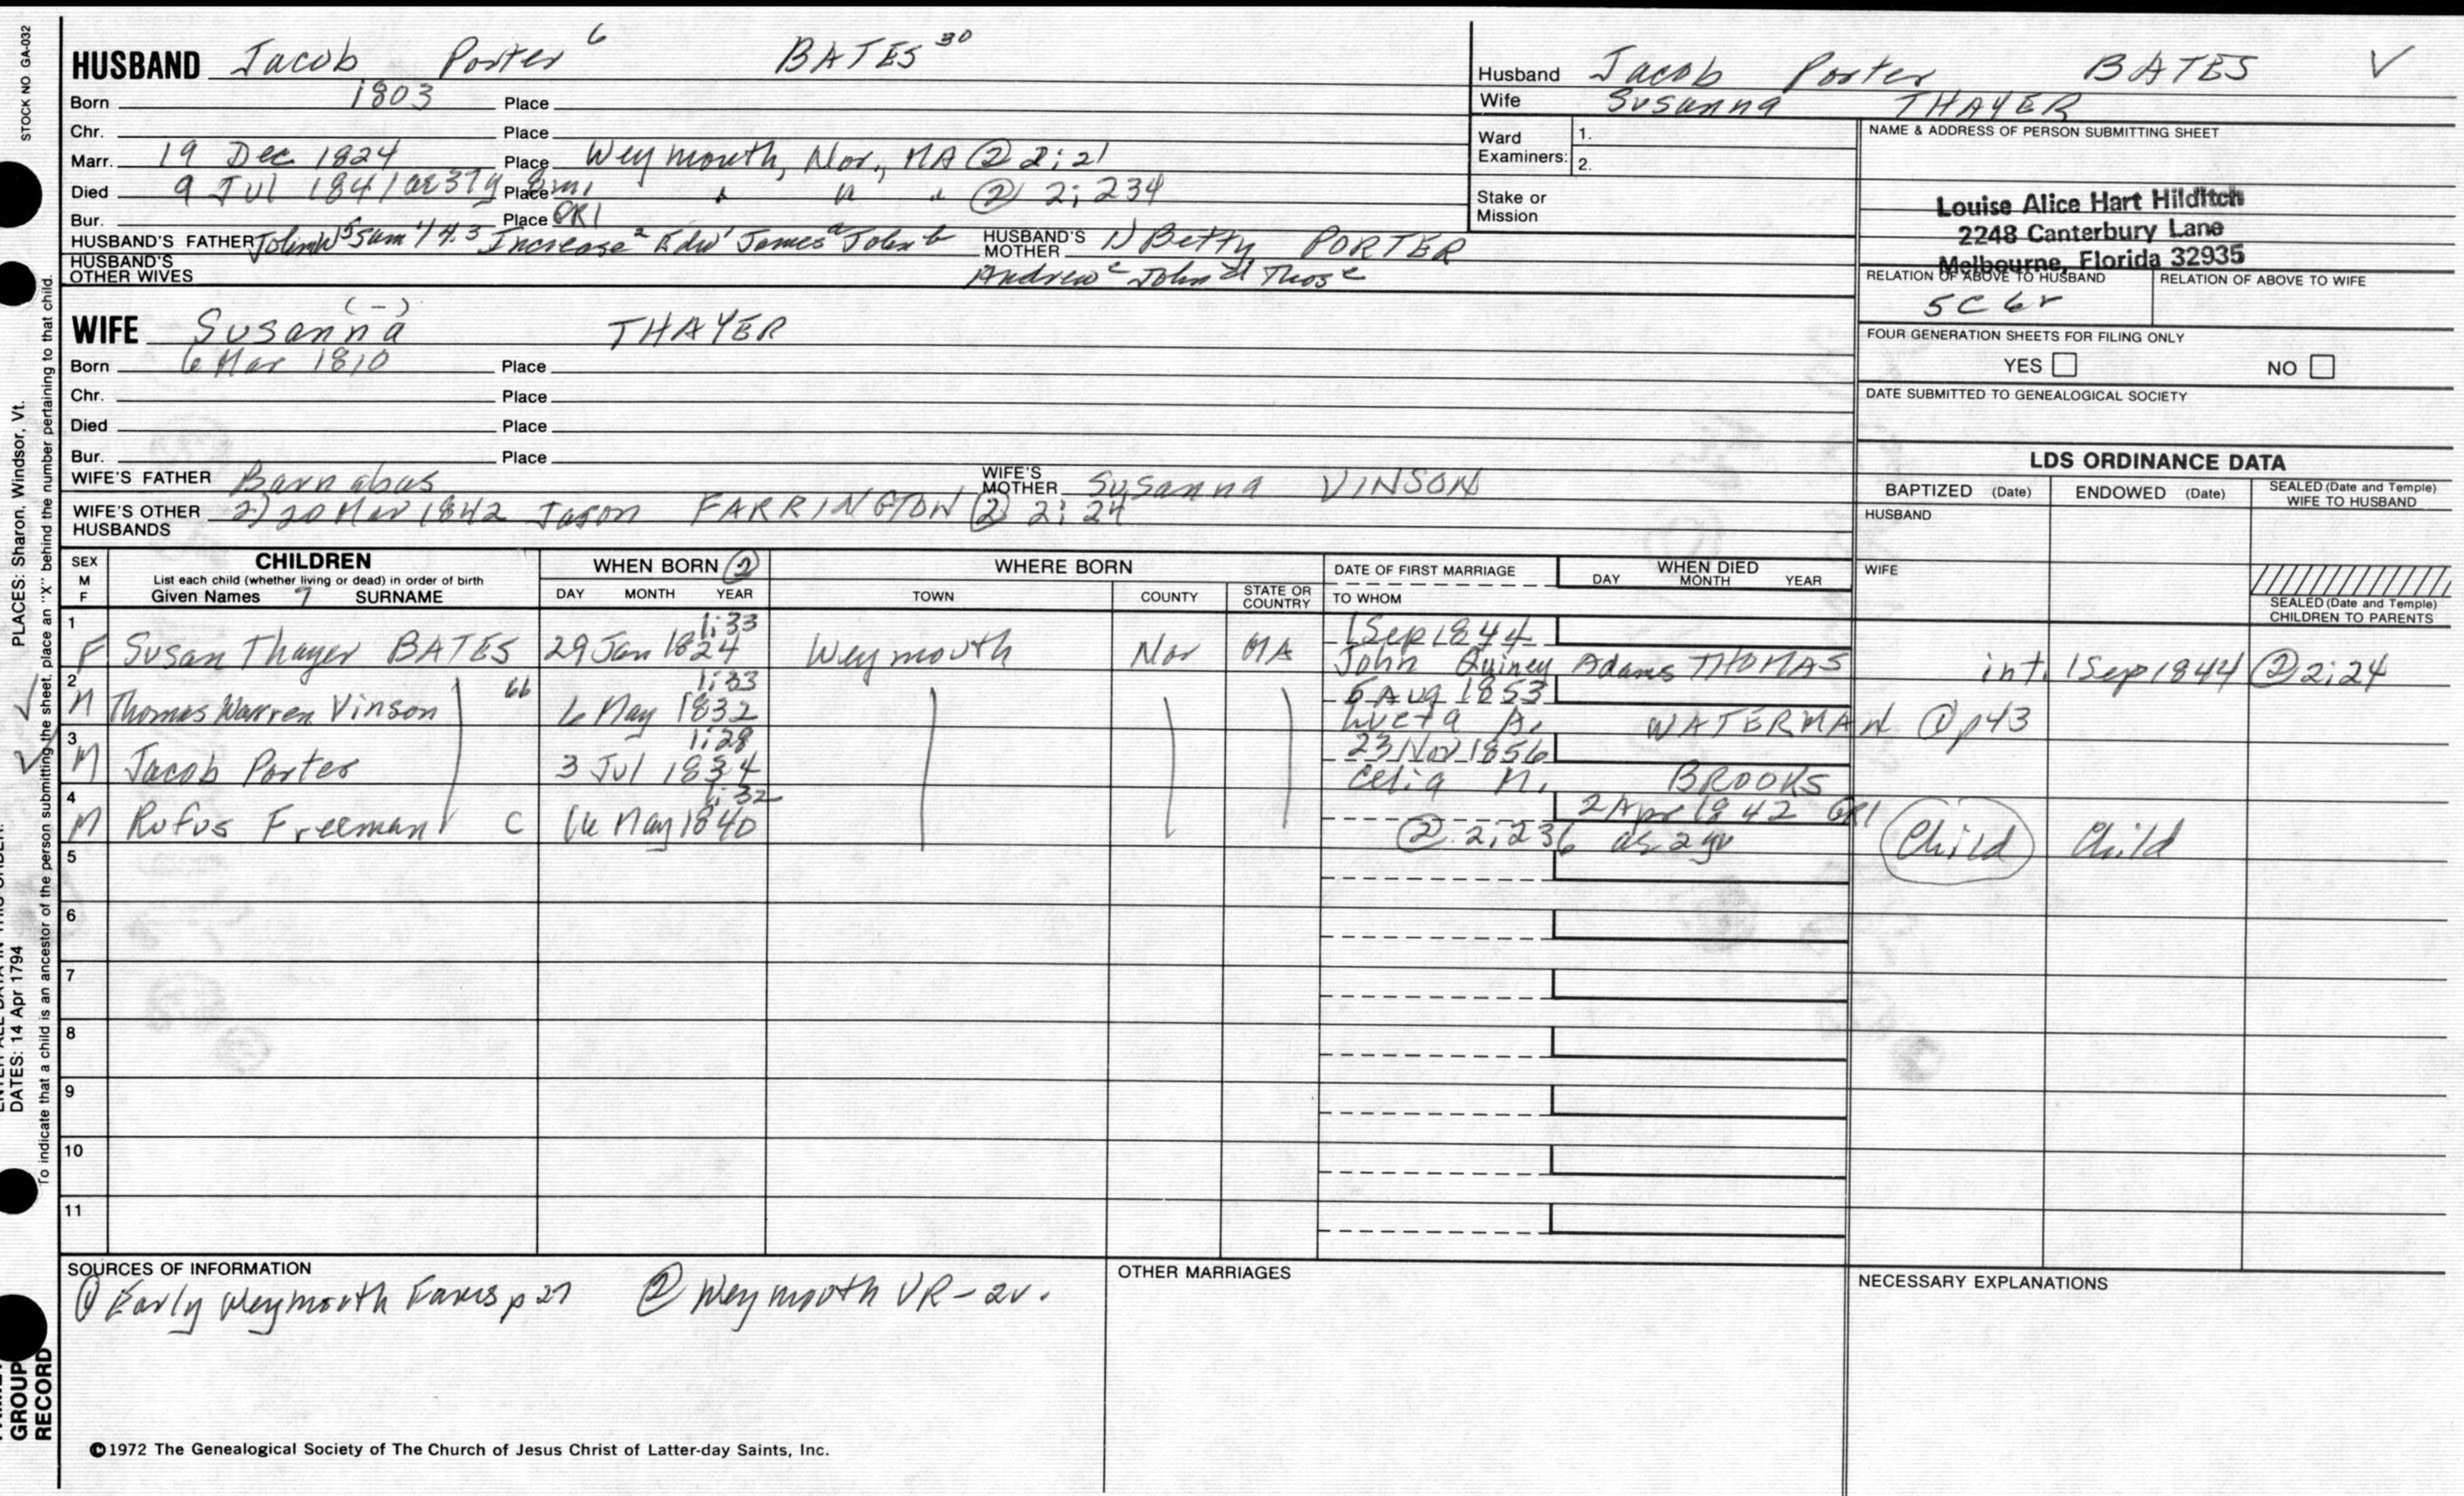 STOCK NO GA-032
HUSBAND Jacob Porter 6 BATES 30
Born 1803 Place
Chr. Place
Marr. 19 Dec 1824 Place Weymouth, Nor., MA ② 2:21
Died 9 Jul 1841 ae 37y 8m, Place " " " ② 2:234
Bur. Place GR1
HUSBAND'S FATHER John W 5 Sam 4 3 Increase 2 Edw 1 James a John b HUSBAND'S MOTHER 1) Betty PORTER
HUSBAND'S OTHER WIVES Andrew c John d Thos e
WIFE Susanna (-) THAYER
Born 6 Mar 1810 Place
Chr. Place
Died Place
Bur. Place
WIFE'S FATHER Barnabas WIFE'S MOTHER Susanna VINSON
WIFE'S OTHER HUSBANDS 2) 20 Mar 1842 Jason FARRINGTON ② 2:24
Husband Jacob Porter BATES V
Wife Susanna THAYER
Ward Examiners: 1.
2.
Stake or Mission
NAME & ADDRESS OF PERSON SUBMITTING SHEET
Louise Alice Hart Hilditch
2248 Canterbury Lane
Melbourne, Florida 32935
RELATION OF ABOVE TO HUSBAND RELATION OF ABOVE TO WIFE
5C 6r
FOUR GENERATION SHEETS FOR FILING ONLY
YES NO
DATE SUBMITTED TO GENEALOGICAL SOCIETY
LDS ORDINANCE DATA
BAPTIZED (Date) ENDOWED (Date) SEALED (Date and Temple) WIFE TO HUSBAND
HUSBAND
WIFE
SEALED (Date and Temple) CHILDREN TO PARENTS
SEX M F CHILDREN WHEN BORN ② WHERE BORN DATE OF FIRST MARRIAGE WHEN DIED
List each child (whether living or dead) in order of birth
Given Names 7 SURNAME DAY MONTH YEAR TOWN COUNTY STATE OR COUNTRY TO WHOM DAY MONTH YEAR
1 1:33 1 Sep 1844
F Susan Thayer BATES 29 Jan 1824 Weymouth Nor MA John Quincy Adams THOMAS int. 1 Sep 1844 ② 2:24
2 66 1:33 6 Aug 1853
M Thomas Warren Vinson 6 May 1832 Lueta A. WATERMAN ① p43
3 1:28 23 Nov 1856
M Jacob Porter 3 Jul 1834 Celia M. BROOKS
4 1:32 2 Apr 1842 GR1
M Rufus Freeman C 16 May 1840 ② 2:236 as 2 yr Child Child
5
6
7
8
9
10
11
SOURCES OF INFORMATION
① Early Weymouth Fams p 27 ② Weymouth VR - 2v.
OTHER MARRIAGES
NECESSARY EXPLANATIONS
©1972 The Genealogical Society of The Church of Jesus Christ of Latter-day Saints, Inc.
PLACES: Sharon, Windsor, Vt.
DATES: 14 Apr 1794
To indicate that a child is an ancestor of the person submitting the sheet, place an "X" behind the number pertaining to that child.
GROUP
RECORD